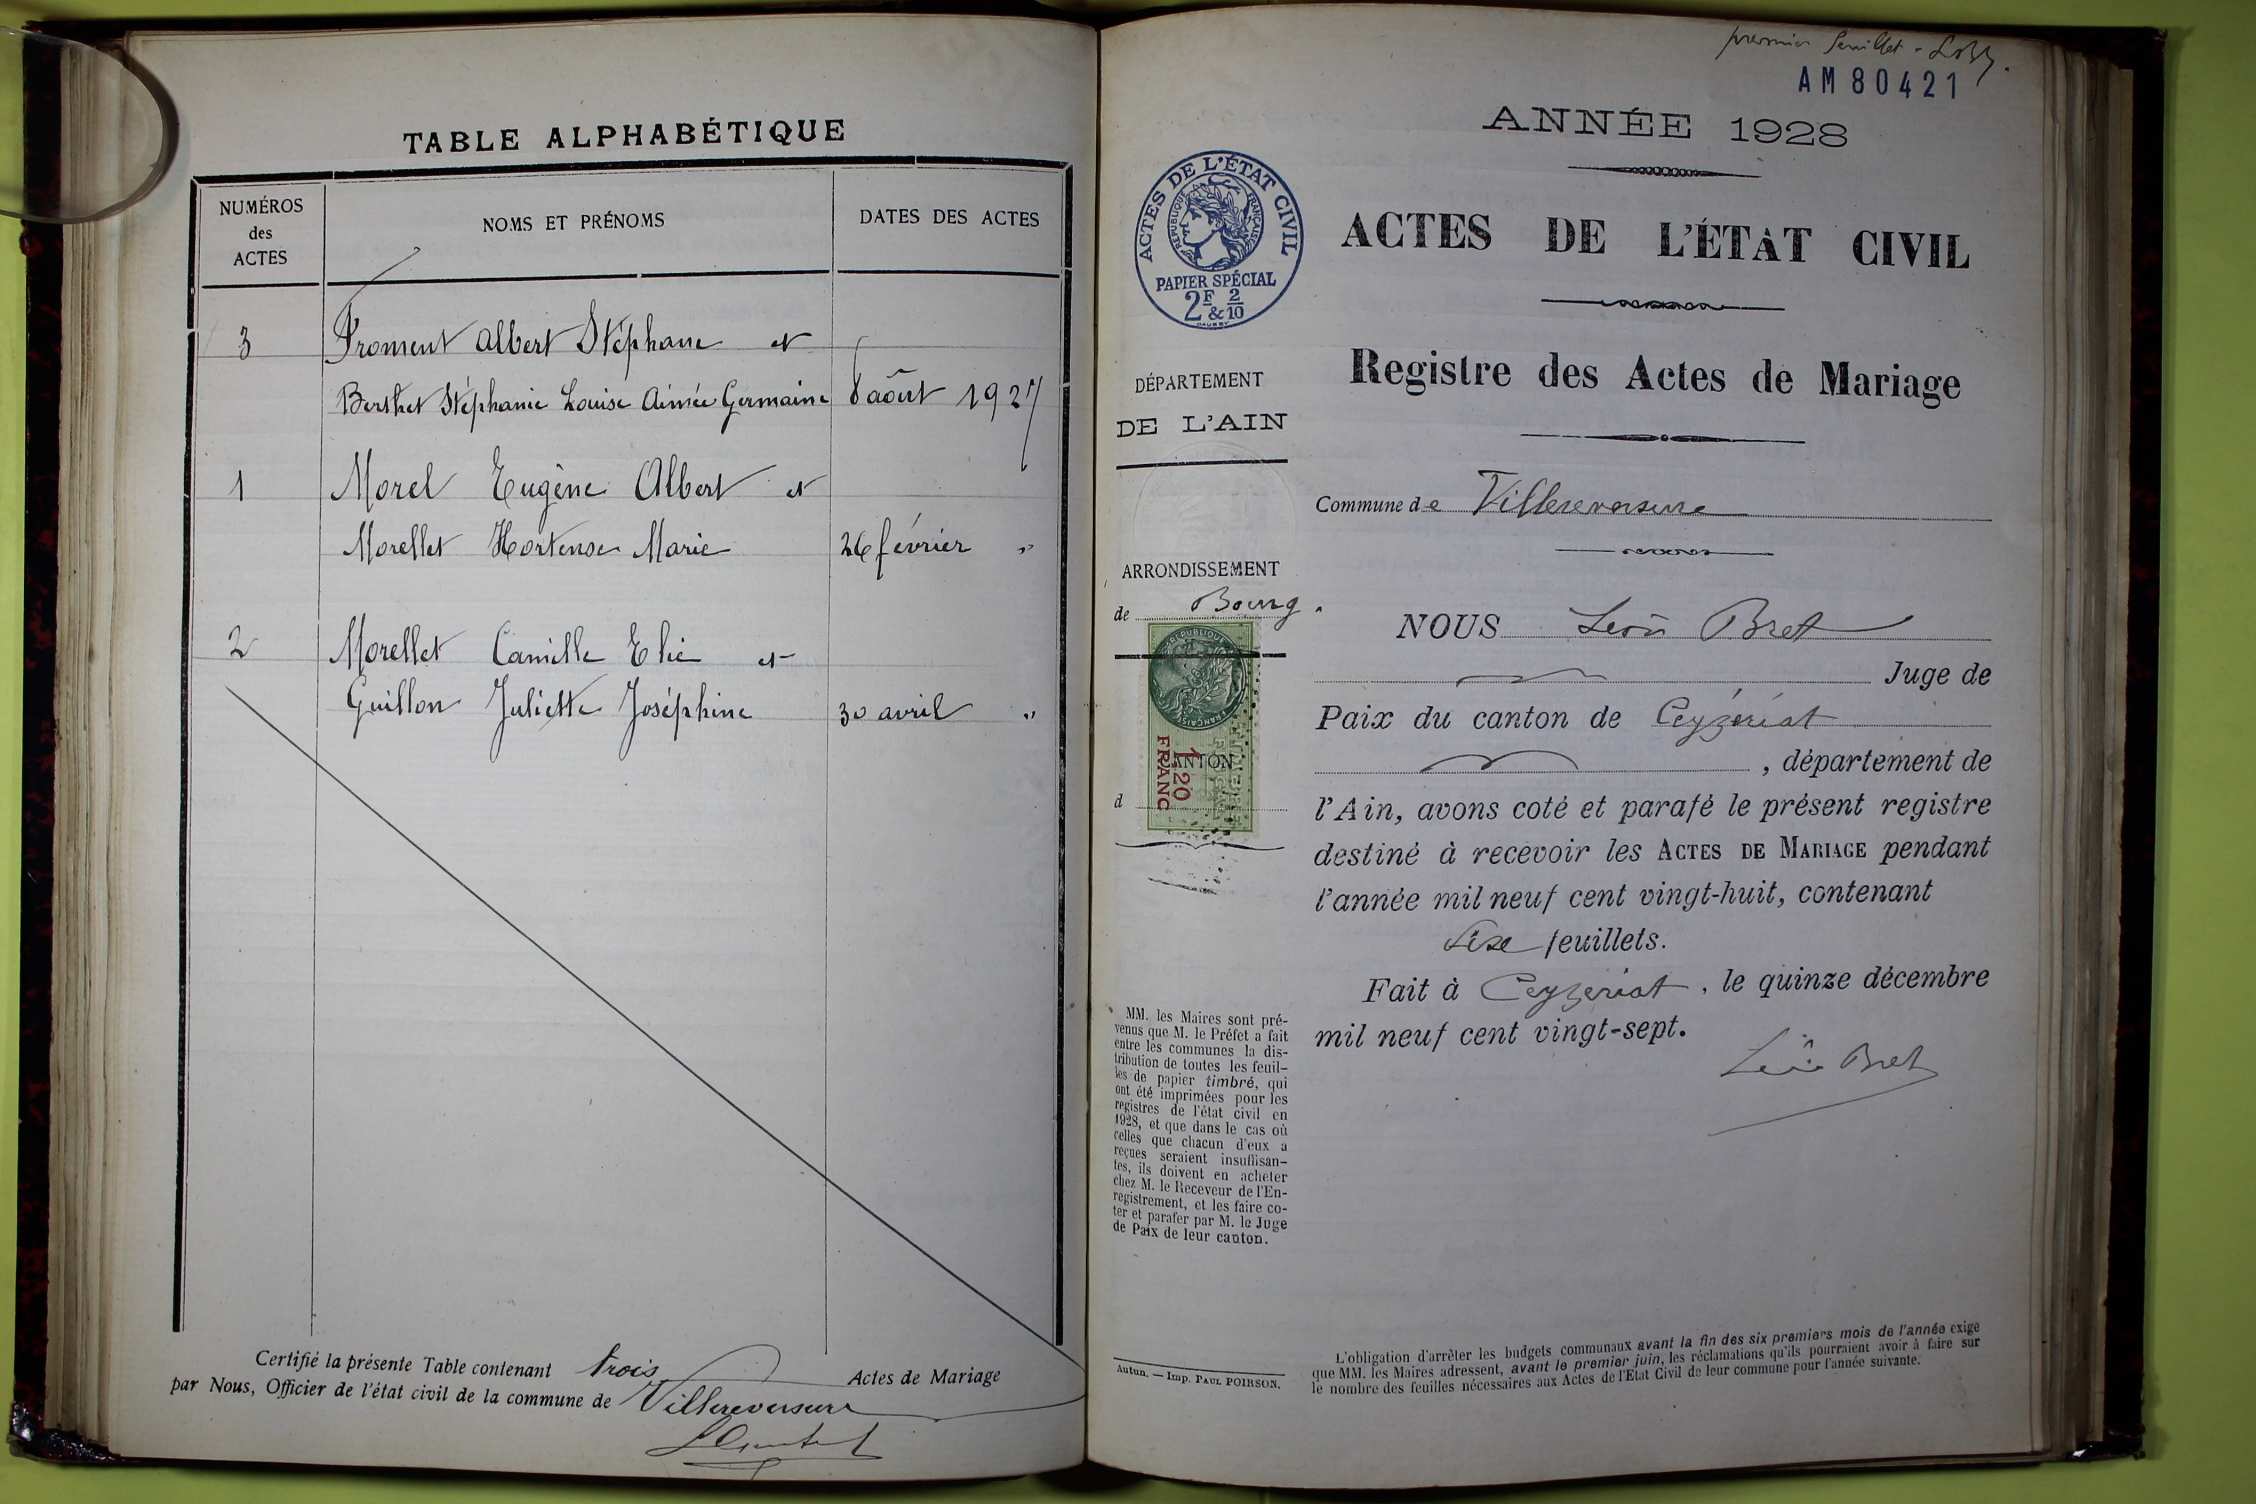 TABLE ALPHABÉTIQUE
NUMÉROS
des
ACTES
NOMS ET PRÉNOMS
DATES DES ACTES
3 Froment Albert Stéphane et
Berthet Stéphanie Louise Aimée Germaine 8 août 1927
1 Morel Eugène Albert et
Morellet Hortense Marie 26 février "
2 Morellet Camille Elie et
Guillon Juliette Joséphine 30 avril "
Certifié la présente Table contenant trois Actes de Mariage
par Nous, Officier de l'état civil de la commune de Villereversure
premier feuillet -
AM 80421
ANNÉE 1928
ACTES DE L'ÉTAT CIVIL
RÉPUBLIQUE FRANÇAISE
PAPIER SPÉCIAL
2F & 2/10
ACTES DE L'ÉTAT CIVIL
Registre des Actes de Mariage
DÉPARTEMENT
DE L'AIN
Commune de Villereversure
ARRONDISSEMENT
de Bourg.
RÉPUBLIQUE FRANÇAISE
1.20
FRANC
CANTON
d
NOUS Léon Bret
Juge de
Paix du canton de Ceyzériat
, département de
l'Ain, avons coté et parafé le présent registre
destiné à recevoir les ACTES DE MARIAGE pendant
l'année mil neuf cent vingt-huit, contenant
Six feuillets.
Fait à Ceyzeriat, le quinze décembre
mil neuf cent vingt-sept.
Léon Bret
MM. les Maires sont pré-
venus que M. le Préfet a fait
entre les communes la dis-
tribution de toutes les feuil-
les de papier timbré, qui
ont été imprimées pour les
registres de l'état civil en
1928, et que dans le cas où
celles que chacun d'eux a
reçues seraient insuffisan-
tes, ils doivent en acheter
chez M. le Receveur de l'En-
registrement, et les faire co-
ter et parafer par M. le Juge
de Paix de leur canton.
Autun. — Imp. PAUL POIRSON.
L'obligation d'arrêter les budgets communaux avant la fin des six premiers mois de l'année exige
que MM. les Maires adressent, avant le premier juin, les réclamations qu'ils pourraient avoir à faire sur
le nombre des feuilles nécessaires aux Actes de l'Etat Civil de leur commune pour l'année suivante.